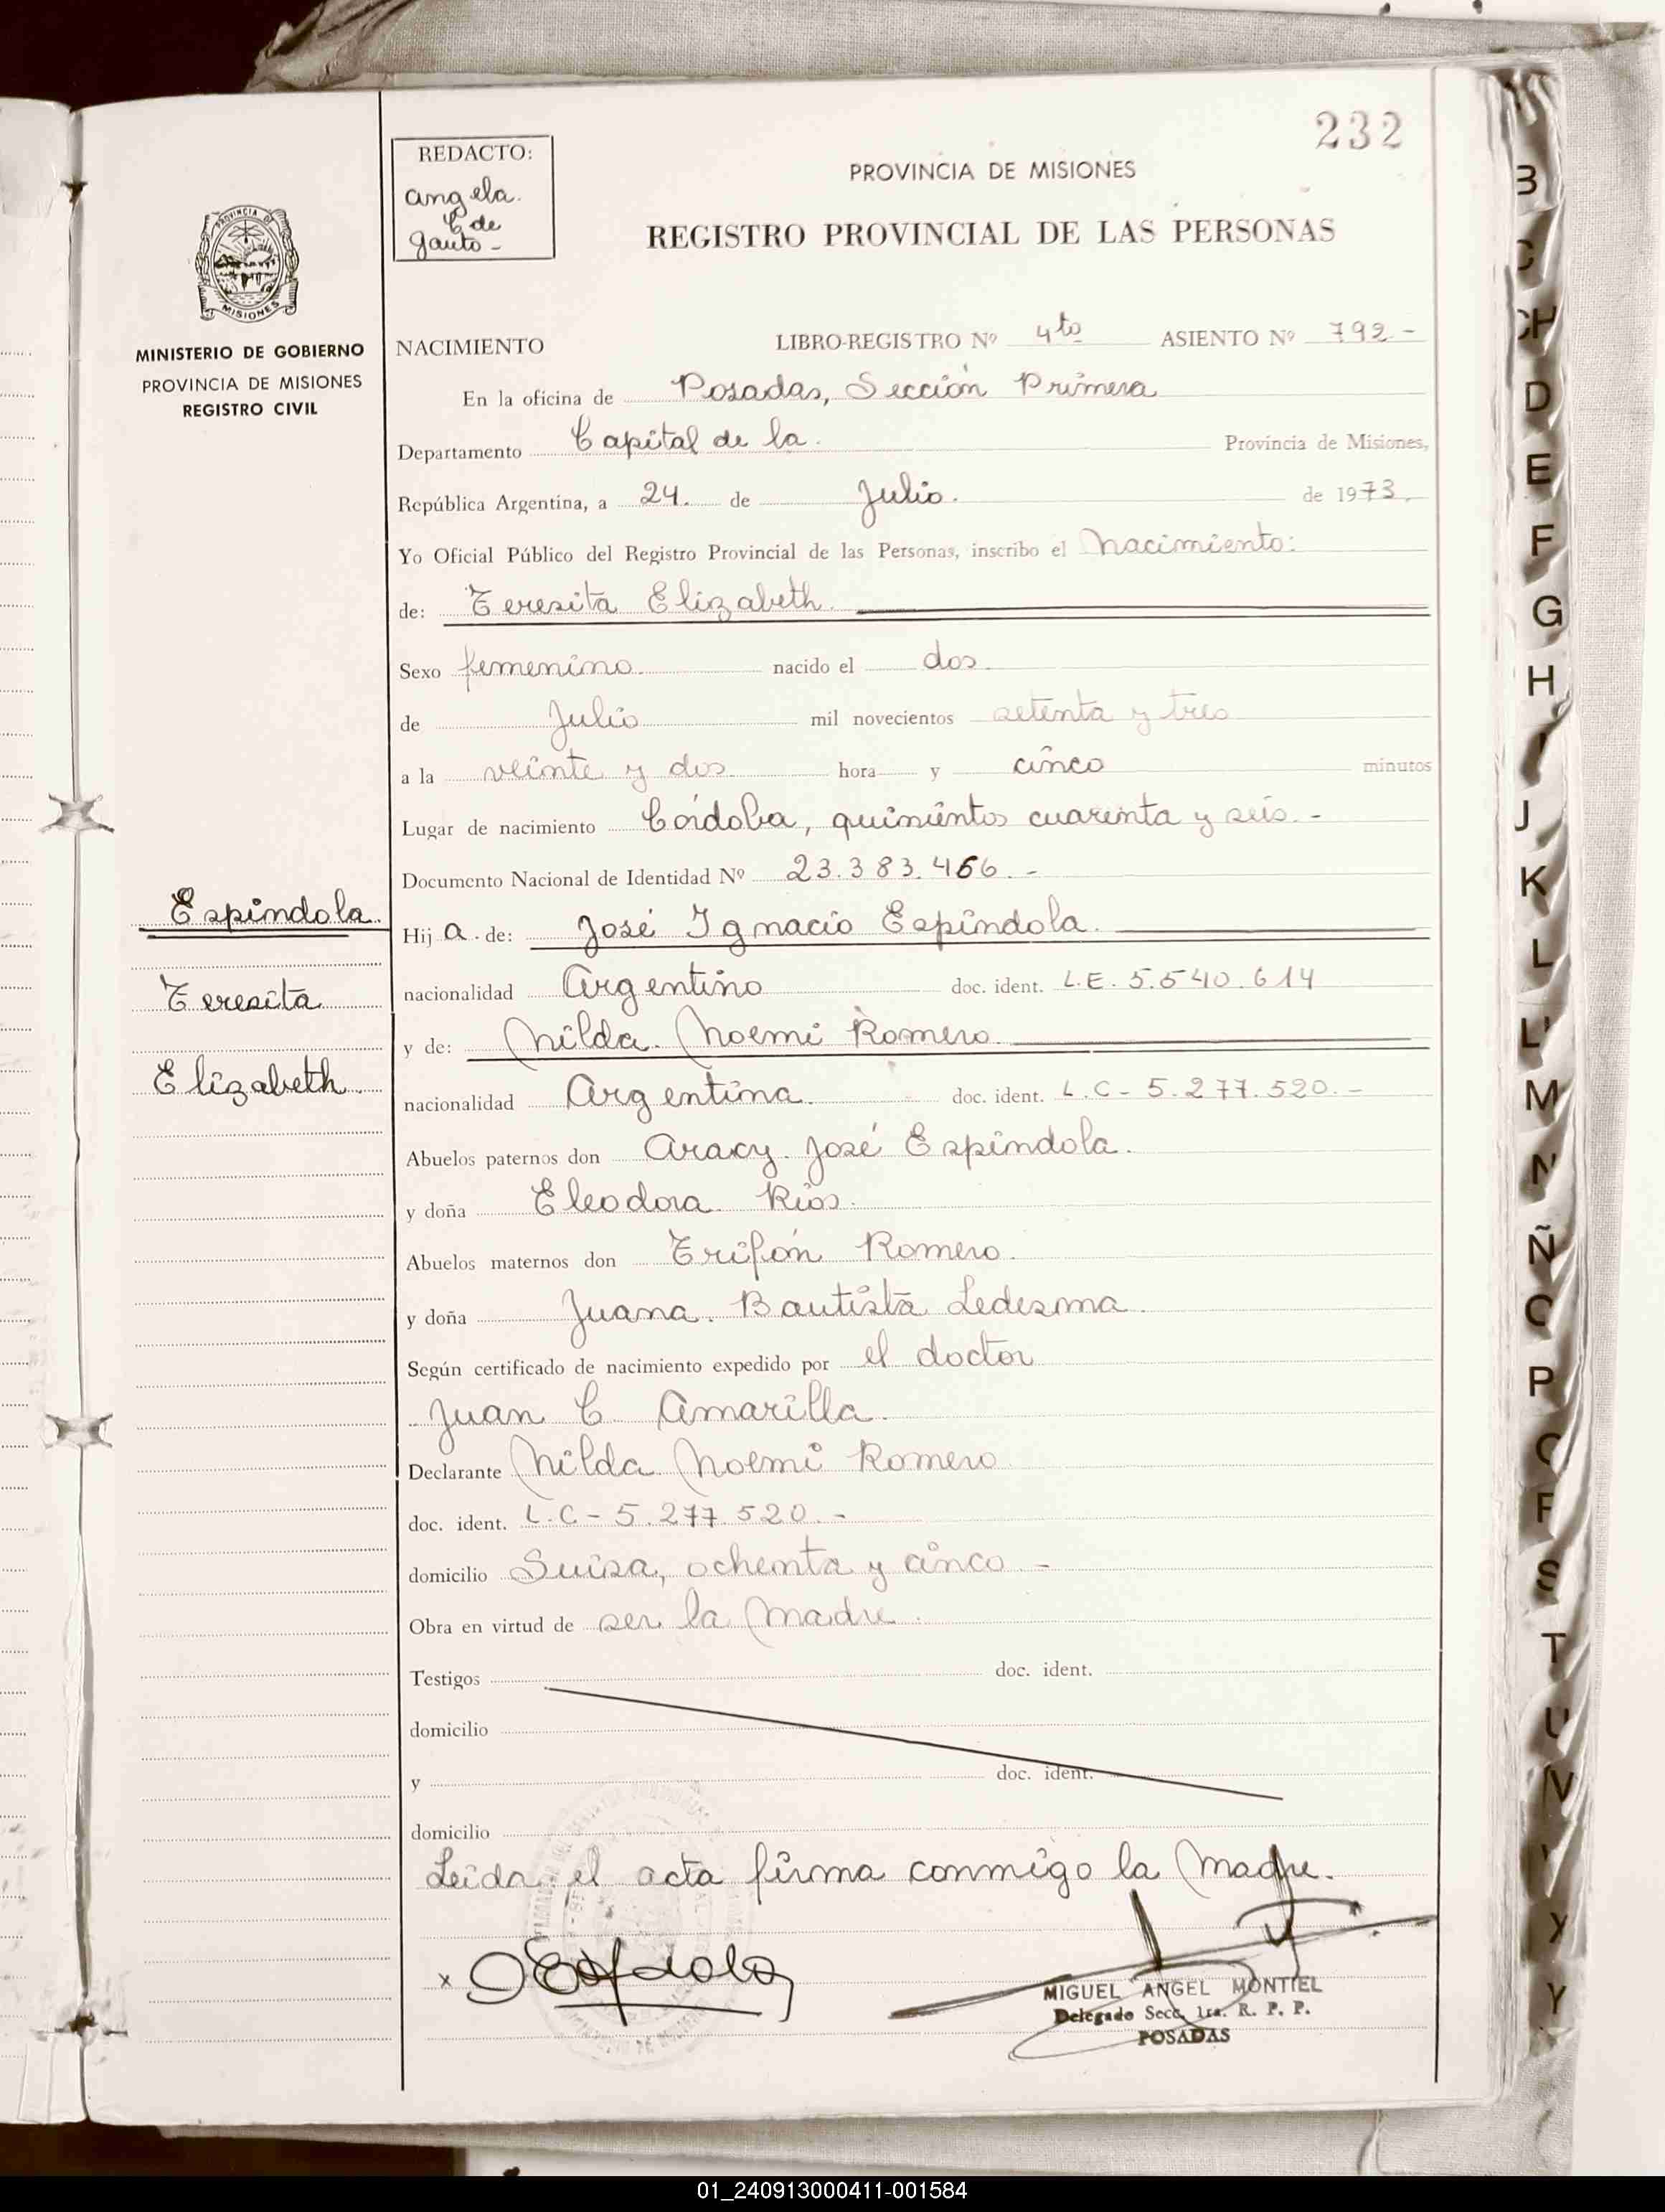 232
REDACTO:
angela.
C de
gauto -
PROVINCIA DE MISIONES
REGISTRO PROVINCIAL DE LAS PERSONAS
MISIONES
MINISTERIO DE GOBIERNO
PROVINCIA DE MISIONES
REGISTRO CIVIL
NACIMIENTO LIBRO-REGISTRO Nº 4to ASIENTO Nº 792 -
En la oficina de Posadas, Sección Primera
Departamento Capital de la. Provincia de Misiones,
República Argentina, a 24. de Julio. de 1973.
Yo Oficial Público del Registro Provincial de las Personas, inscribo el Nacimiento:
de: Teresita Elizabeth.
Sexo femenino. nacido el dos
de Julio mil novecientos setenta y tres
a la veinte y dos hora y cinco minutos
Lugar de nacimiento Córdoba, quinientos cuarenta y seis. -
Documento Nacional de Identidad Nº 23.383.466. -
Espíndola.
Hij a. de: José Ignacio Espíndola.
Teresita
nacionalidad Argentino doc. ident. L.E. 5.540.614
y de: Nilda. Noemi Romero.
Elizabeth
nacionalidad Argentina. doc. ident. L.C - 5.277.520. -
Abuelos paternos don Aracy. José Espíndola.
y doña Eleodora Ríos.
Abuelos maternos don Trifón Romero.
y doña Juana. Bautista Ledesma.
Según certificado de nacimiento expedido por el doctor
Juan C. Amarilla.
Declarante Nilda Noemi Romero
doc. ident. L.C - 5.277.520. -
domicilio Suiza, ochenta y cinco. -
Obra en virtud de ser la Madre.
Testigos doc. ident.
domicilio
y doc. ident.
domicilio
Leída el acta firma conmigo la Madre.
x
MIGUEL ANGEL MONTIEL
Delegado Secc. 1ra. R. P. P.
POSADAS
B
C
CH
D
E
F
G
H
I
J
K
L
LL
M
N
Ñ
O
P
Q
R
S
T
U
V
X
Y
01_240913000411-001584